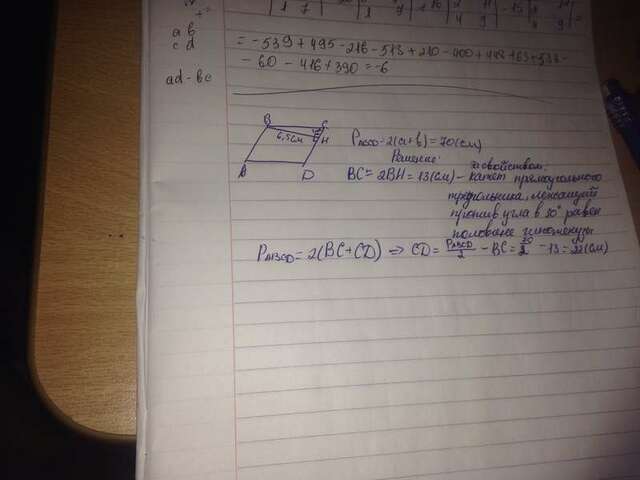 1 7
1 7
+16
2
4 9
-15
4 9
a b
c d
ad - bc
= -539 + 495 - 216 - 513 + 210 - 400 + 448 + 63 + 538 -
- 60 - 416 + 390 = -6
B C
6,5см H
A D
P ABCD = 2(a+b) = 70(см)
Решение:
за свойством:
BC = 2BH = 13(см) - катет прямоугольного
треугольника, лежащий
против угла в 30° равен
половине гипотенузы
P ABCD = 2(BC + CD) => CD = P ABCD / 2 - BC = 70 / 2 - 13 = 22(см)